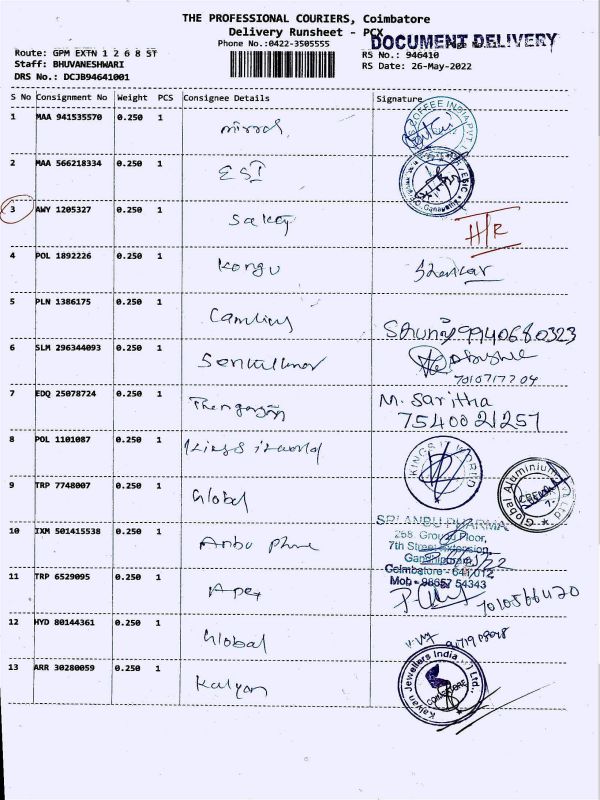 THE PROFESSIONAL COURIERS, Coimbatore
Delivery Runsheet - PCX
DOCUMENT DELIVERY
Phone No.:0422-3505555
Route: GPM EXTN 1 2 6 8 ST
RS No.: 946410
Staff: BHUVANESHWARI
RS Date: 26-May-2022
DRS No.: DCJB94641001
S No Consignment No Weight PCS Consignee Details Signature
1 MAA 941535570 0.250 1 mirrah
COFFEE INDIA PVT. L
2 MAA 566218334 0.250 1 ESI
ESIC
3 AWY 1205327 0.250 1 Sakthy
H/R
4 POL 1892226 0.250 1 Kongu Shankar
5 PLN 1386175 0.250 1
9940680323
6 SLM 296344093 0.250 1
7010717704
7 EDQ 25078724 0.250 1 M. Saritha
7540021257
8 POL 1101087 0.250 1 Kings itworld
KINGS IT WORLD
9 TRP 7748007 0.250 1 Global
Global Aluminium Pvt Ltd
10 IXM 501415538 0.250 1 Anbu
SRI ANBU PHARMA
258, Ground Floor,
7th Street Extension,
Gandhipuram
Coimbatore - 641 012
Mob - 98657 54343
11 TRP 6529095 0.250 1 Apex
7010566420
12 HYD 80144361 0.250 1 Global
13 ARR 30280059 0.250 1 Kalyan
Kalyan Jewellers India (P) Ltd.,
COIMBATORE